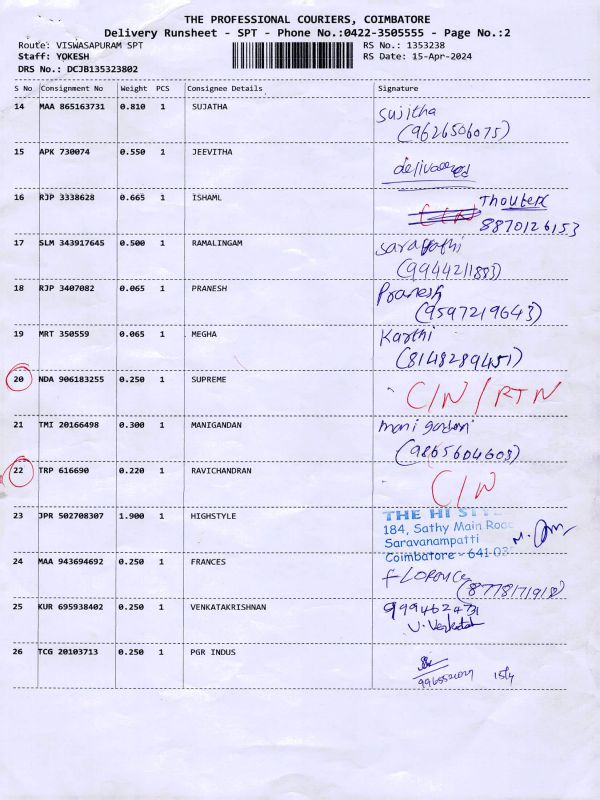 THE PROFESSIONAL COURIERS, COIMBATORE
Delivery Runsheet - SPT - Phone No.:0422-3505555 - Page No.:2
Route: VISWASAPURAM SPT RS No.: 1353238
Staff: YOKESH RS Date: 15-Apr-2024
DRS No.: DCJB135323802
S No Consignment No Weight PCS Consignee Details Signature
14 MAA 865163731 0.810 1 SUJATHA Sujitha
(9626506075)
15 APK 730074 0.550 1 JEEVITHA delivered
16 RJP 3338628 0.665 1 ISHAML
8870126153
17 SLM 343917645 0.500 1 RAMALINGAM
(9944211883)
18 RJP 3407082 0.065 1 PRANESH Pranesh
(9597219643)
19 MRT 350559 0.065 1 MEGHA Karthi
(8148289451)
20 NDA 906183255 0.250 1 SUPREME C/N / RTN
21 TMI 20166498 0.300 1 MANIGANDAN
(9865604603)
22 TRP 616690 0.220 1 RAVICHANDRAN C/N
23 JPR 502708307 1.900 1 HIGHSTYLE THE HI
184, Sathy Main Road
Saravanampatti
Coimbatore - 641
24 MAA 943694692 0.250 1 FRANCES
25 KUR 695938402 0.250 1 VENKATAKRISHNAN
26 TCG 20103713 0.250 1 PGR INDUS
15/4